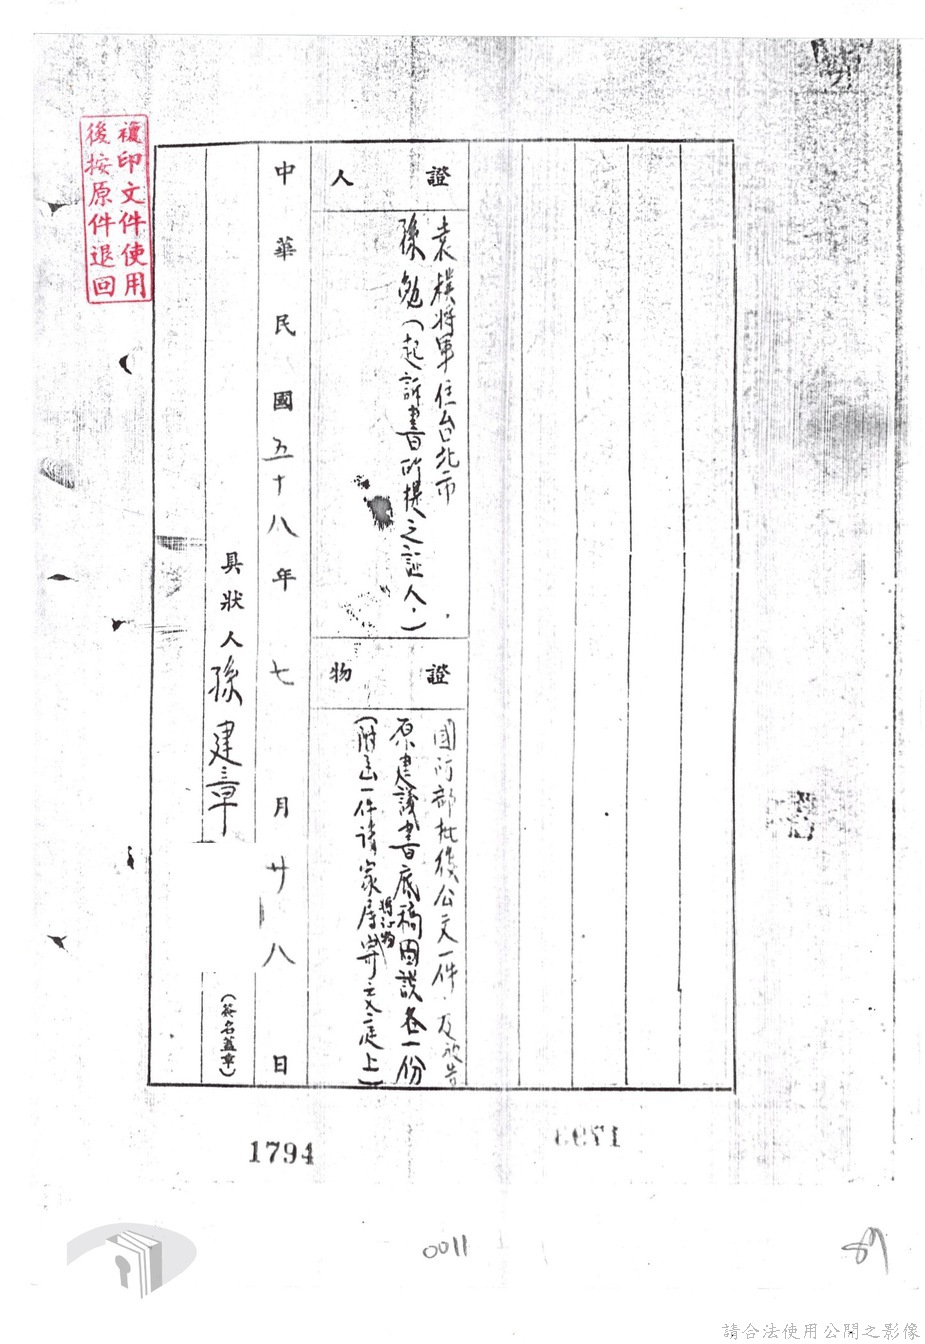 複印文件使用
後按原件退回
證人
袁樸將軍住台北市
孫勉(起訴書所提之証人.)
證物
國防部批復公文一件.及被告
原建議書底稿图説各一份
(附函一件請家房寄文庭上)
將证物
中華民國五十八年七月廿八日
具狀人孫建章
(簽名蓋章)
1794
1793
0011
請合法使用公開之影像